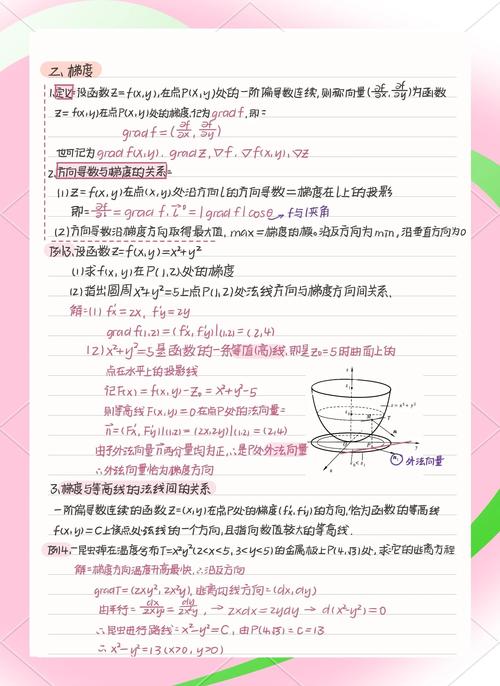 二、梯度
1.定义:设函数z=f(x,y),在点P(x,y)处的一阶偏导数连续,则称向量(∂f/∂x,∂f/∂y)为函数
z=f(x,y)在点P(x,y)处的梯度,记为gradf,即:
gradf=(∂f/∂x,∂f/∂y)
也可记为gradf(x,y),gradz,▽f,▽f(x,y),▽z
2.方向导数与梯度的关系:
(1)z=f(x,y)在点(x,y)处沿方向l的方向导数=梯度在l上的投影
即:∂f/∂l=gradf·l⁰=|gradf|cosθ→f与l夹角
(2)方向导数沿梯度方向取得最大值,max=梯度的模。沿反方向为min,沿垂直方向为0
例13.设函数z=f(x,y)=x²+y²
(1)求f(x,y)在P(1,2)处的梯度
(2)指出圆周x²+y²=5上点P(1,2)处法线方向与梯度方向间关系.
解:(1)f'x=2x,f'y=2y
gradf(1,2)=(f'x,f'y)|(1,2)=(2,4)
(2)x²+y²=5是函数的一条等值(高)线,即是z₀=5时曲面上的
点在水平上的投影线
记F(x)=f(x,y)-z₀=x²+y²-5
则等高线F(x,y)=0在点P处的法向量=
n=(F'x,F'y)|(1,2)=(2x,2y)|(1,2)=(2,4)
由于外法向量n两分量均为正,∴是P处外法向量
外法向量
∴外法向量恰为梯度方向
3.梯度与等高线的法线间的关系
一阶偏导数连续的函数z=(x,y)在点P处的梯度(f'x,f'y)的方向,恰为函数的等高线
f(x,y)=C上该点处法线的一个方向,且指向数值较大的等高线.
例14.一昆虫在温度分布T=x²y²(2<x<5,3<y<5)的金属板上P(4,√3)处,求它的逃离方程
解:梯度方向温度升高最快,∴沿反方向
gradT=(2xy²,2x²y),逃离切线方向=(dx,dy)
由平行=dx/2xy²=dy/2x²y,→2xdx=2ydy→d(x²-y²)=0
∴昆虫进行路线=x²-y²=C,由P(4,√3)=C=13
∴x²-y²=13(x>0,y>0)